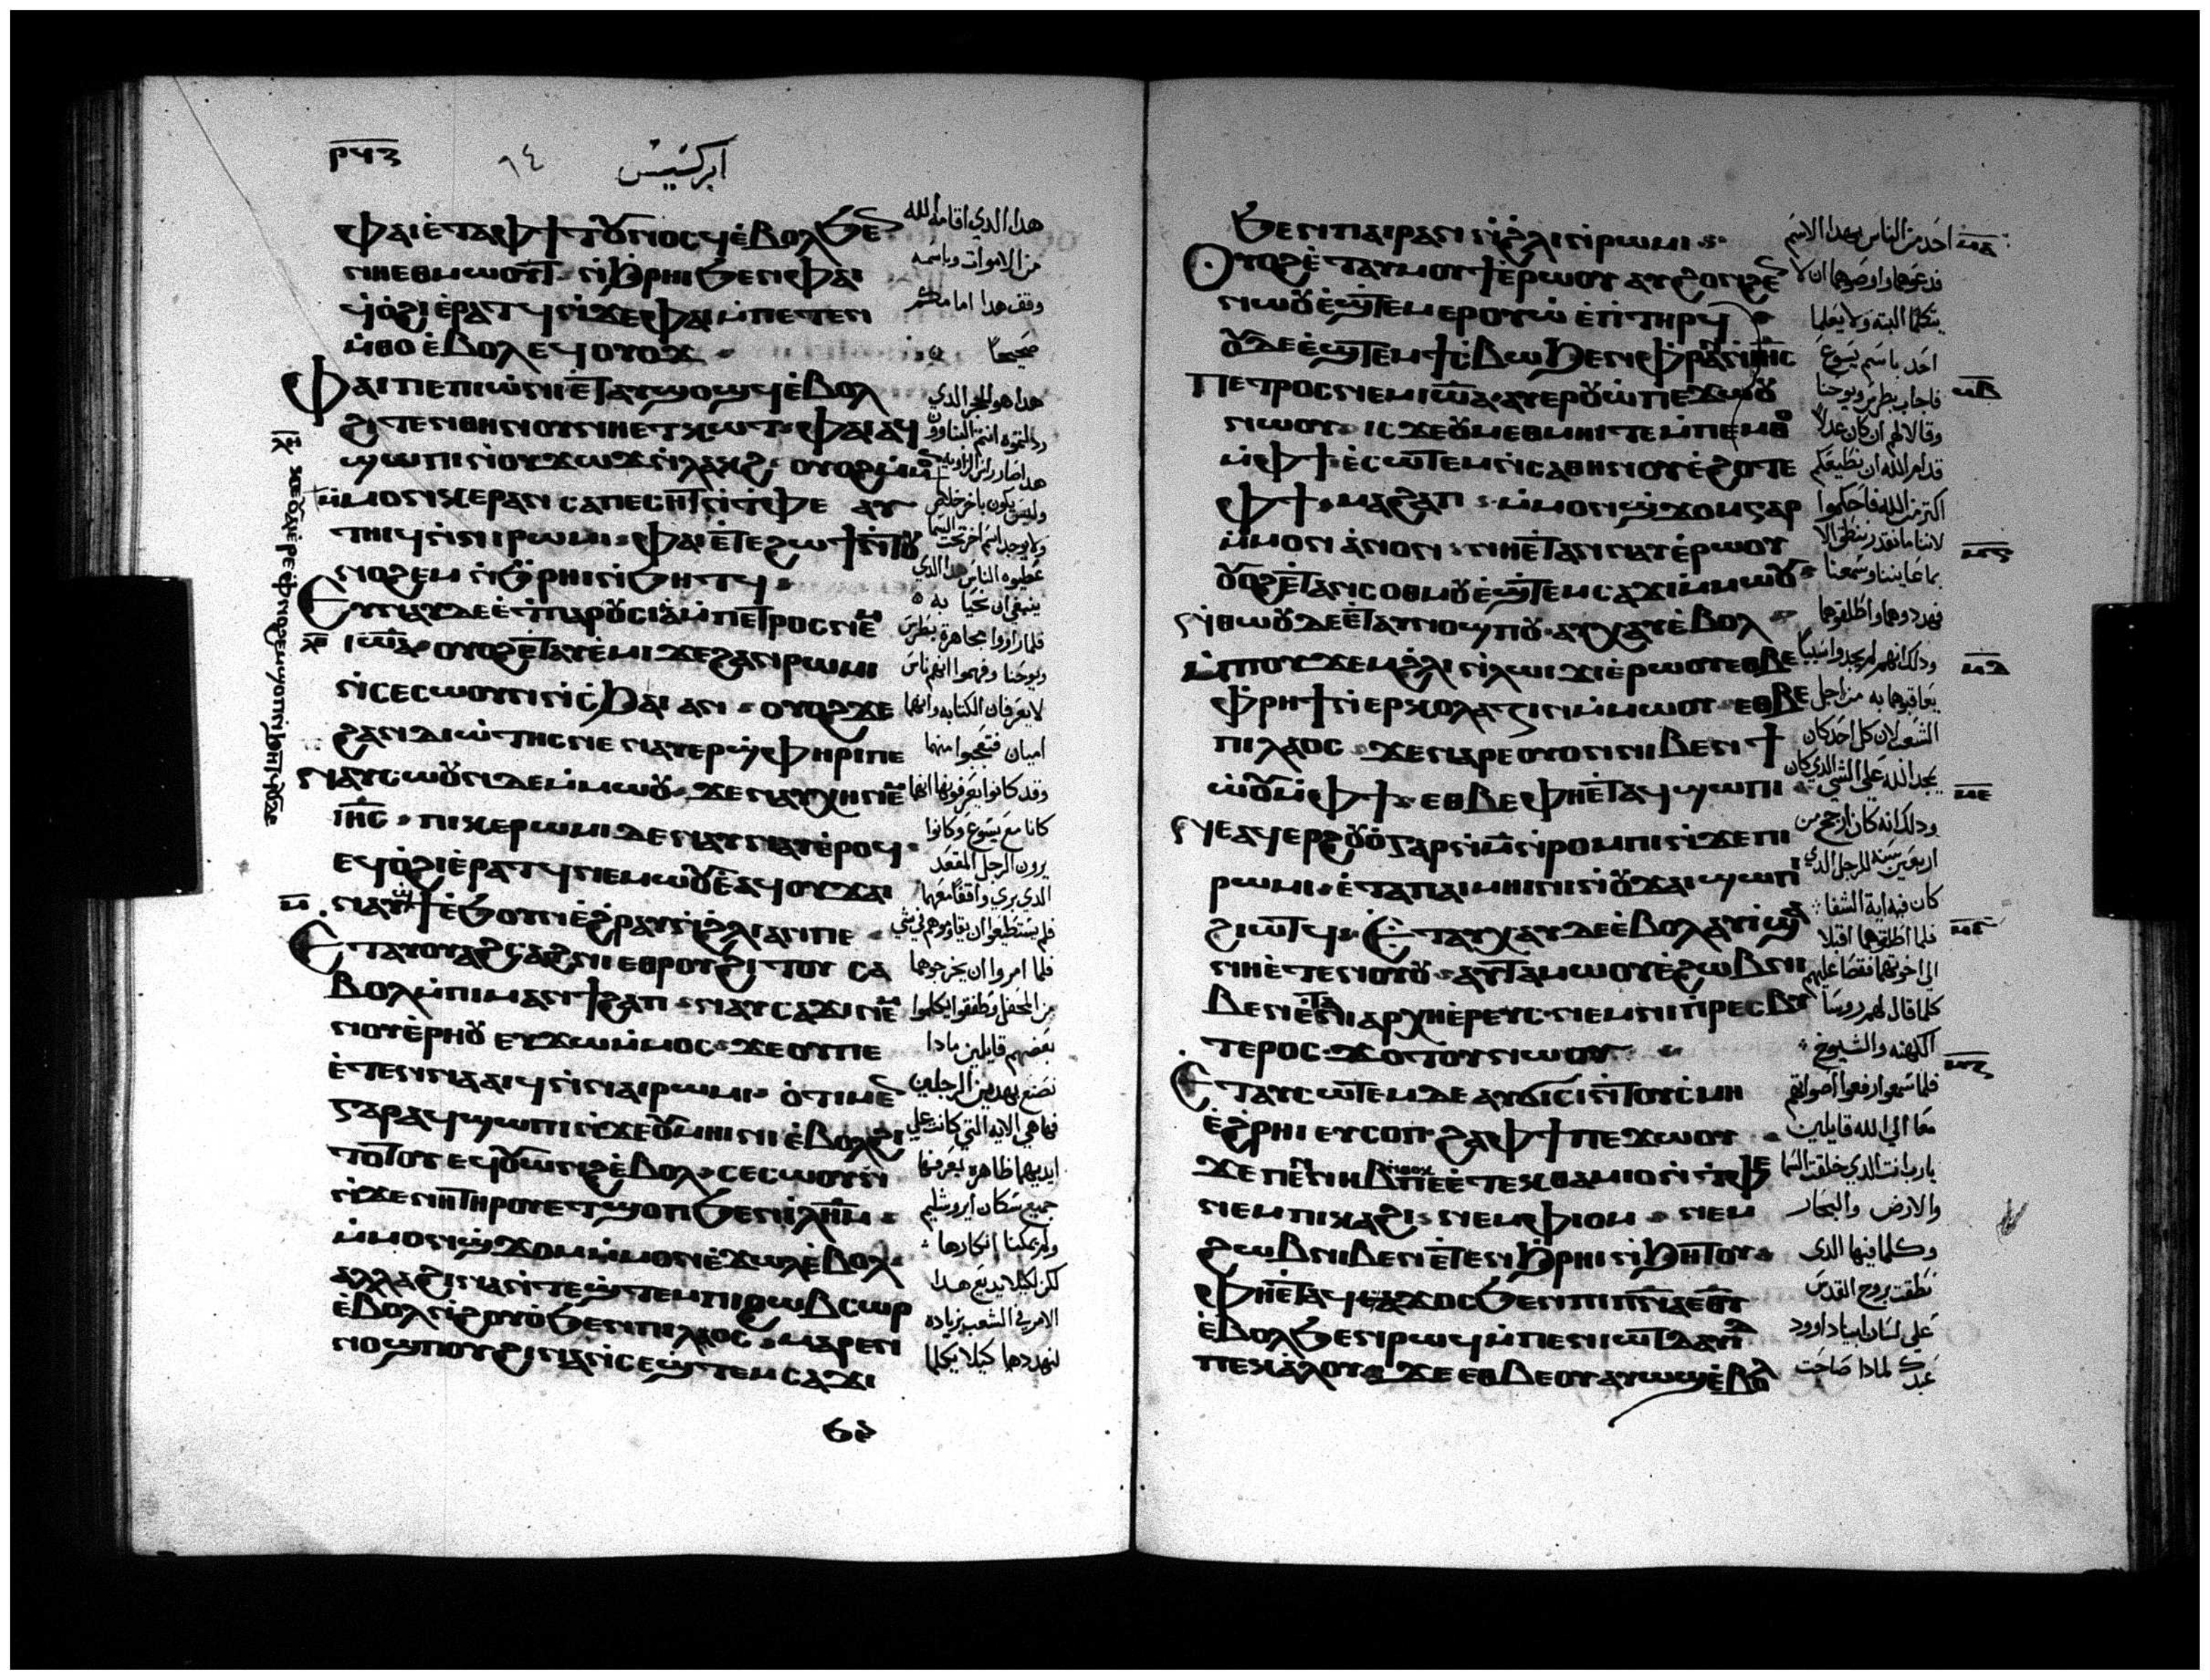 ⲣϥⲍ
٩٤
ابركسيس
ⲫⲁⲓ ⲉ̀ⲧⲁⲫϯ ⲧⲟⲩⲛⲟⲥϥ ⲉ̀ⲃⲟⲗ ϧⲉ
ⲛⲏⲉⲑⲙⲱⲟⲩⲧ ⲛ̀ϩ̀ⲣⲏⲓ ϧⲉⲛ ⲫⲁⲓ
ϥⲟ̀ϩⲓ ⲉ̀ⲣⲁⲧϥ ⲛ̀ϫⲉ ⲫⲁⲓ ⲙ̀ⲡⲉⲧⲉⲛ
ⲙ̀ⲑⲟ ⲉ̀ⲃⲟⲗ ⲉϥⲟⲩⲟϫ
ⲫⲁⲓ ⲡⲉ ⲡⲓⲱ̀ⲛⲓ ⲉ̀ⲧⲁⲩϣⲟϣϥ ⲉ̀ⲃⲟⲗ
ϩⲓⲧⲉⲛ ⲑⲏⲛⲟⲩ ⲛⲏⲉⲧⲕⲱⲧ ⲫⲁⲓ ⲁϥ
ϣⲱⲡⲓ ⲛ̀ⲟⲩϫⲱϫ ⲛ̀ⲗⲁⲕϩ ⲟⲩⲟϩ ⲙ̀ⲙⲟⲛ
ⲙ̀ⲙⲟⲛ ⲕⲉⲣⲁⲛ ⲥⲁⲡⲉⲥⲏⲧ ⲛ̀ⲧⲫⲉ ⲁⲩ
ⲧⲏⲓϥ ⲛ̀ⲛⲓⲣⲱⲙⲓ ⲫⲁⲓ ⲉ̀ⲧⲉϩⲱϯ ⲛ̀ⲧⲟⲩ
ⲛⲟϩⲉⲙ ⲛ̀ϧ̀ⲣⲏⲓ ⲛ̀ϧⲏⲧϥ
ⲉⲩⲛⲁⲩ ⲇⲉ ⲉ̀ϯⲡⲁⲣⲟⲩⲥⲓⲁ ⲙ̀ⲡⲉⲧⲣⲟⲥ ⲛⲉⲙ
ⲓⲱⲁ ⲟⲩⲟϩ ⲉ̀ⲧⲁⲩⲉ̀ⲙⲓ ϫⲉ ϩⲁⲛⲣⲱⲙⲓ
ⲛ̀ⲥⲉⲥⲱⲟⲩⲛ ⲛ̀ⲥ̀ϧⲁⲓ ⲁⲛ ⲟⲩⲟϩ ϫⲉ
ϩⲁⲛⲓⲇⲓⲱⲧⲏⲥ ⲛⲉ ⲛⲁⲩⲉⲣϣ̀ⲫⲏⲣⲓ ⲡⲉ
ⲛⲁⲩⲥⲱⲟⲩⲛ ⲇⲉ ⲙ̀ⲙⲱⲟⲩ ϫⲉ ⲛⲁⲩⲭⲏ ⲛⲉⲙ
ⲓⲏⲥ ⲡⲓⲕⲉⲣⲱⲙⲓ ⲇⲉ ⲛⲁⲩⲛⲁⲩ ⲉ̀ⲣⲟϥ
ⲉϥⲟ̀ϩⲓ ⲉ̀ⲣⲁⲧϥ ⲛⲉⲙⲱⲟⲩ ⲉ̀ⲁϥⲟⲩϫⲁⲓ
ⲛⲁⲩϯ ⲉ̀ϧⲟⲩⲛ ⲉ̀ϩ̀ⲣⲁⲩ ⲛ̀ϩ̀ⲗⲓ ⲁⲛ ⲡⲉ
ⲉⲧⲁⲩⲟⲩⲁϩⲥⲁϩⲛⲓ ⲉⲑⲣⲟⲩϩⲓⲧⲟⲩ ⲥⲁ
ⲃⲟⲗ ⲙ̀ⲡⲓⲙⲁⲛϯϩⲁⲡ ⲛⲁⲩⲥⲁϫⲓ ⲛⲉⲙ
ⲛⲟⲩⲉⲣⲏⲟⲩ ⲉⲩϫⲱ ⲙ̀ⲙⲟⲥ ϫⲉ ⲟⲩ ⲡⲉ
ⲉ̀ⲧⲉⲛⲛⲁⲁⲓϥ ⲛ̀ⲛⲁⲓⲣⲱⲙⲓ ⲟ̀ⲧⲓ ⲙⲉⲛ
ⲅⲁⲣ ⲁϥϣⲱⲡⲓ ⲛ̀ϫⲉ ⲟⲩⲙⲏⲓⲛⲓ ⲉ̀ⲃⲟⲗϩⲓ
ⲧⲟⲧⲟⲩ ⲉϥⲟⲩⲱⲛϩ ⲉ̀ⲃⲟⲗ ⲥⲉⲥⲱⲟⲩⲛ
ⲛ̀ϫⲉ ⲛⲏ ⲧⲏⲣⲟⲩ ⲉⲧϣⲟⲡ ϧⲉⲛ ⲓⲗⲏⲙ
ⲙ̀ⲙⲟⲛ ϣ̀ϫⲟⲙ ⲙ̀ⲙⲟⲛ ⲉ̀ϫⲱⲗ ⲉ̀ⲃⲟⲗ
ⲁⲗⲗⲁ ϩⲓⲛⲁ ⲛ̀ⲧⲉϣ̀ⲧⲉⲙ ⲡⲓϩⲱⲃ ⲥⲱⲣ
ⲉ̀ⲃⲟⲗ ⲛ̀ϩⲟⲩⲟ̀ ϧⲉⲛ ⲡⲓⲗⲁⲟⲥ ⲙⲁⲣⲉⲛ
ⲛⲟϣⲡⲟⲩ ϩⲓⲛⲁ ⲛ̀ⲥⲉϣ̀ⲧⲉⲙⲥⲁϫⲓ
هدا الدي اقامه الله
من الاموات وباسمه
وقف هدا امامكم
صحيحا
هدا هو الحجر الدي
ردلتموه انتم البناوون
هدا صار راس الزاويه
وليس يكون باخر خلاص
ولا يوجد اسم اخر تحت السما
عطيوه الناس هدا الدي
ينبغي ان نحيا به
فلما راووا مجاهرة بطرس
ويوحنا وفهموا انهم ناس
لا يعرفان الكتابه وانهما
اميان فتعجبوا منهما
وقد كانوا يعرفونهما انهما
كانا مع يسوع وكانوا
يرون الرجل المقعد
الدي بري واقفا معهما
فلم يستطيعوا ان يقاوموهم في شي
فلما امروا ان يخرجوهما
من المحفل وطفقوا يكلموا
بعضهم قايلين مادا
نصنع بهدين الرجلين
فهاهي الايه التي كانت علي
ايديهما ظاهره يعرفها
جميع سكان ايروشليم
ولم يمكننا انكارها
لكن لكيلا يديع هدا
الامر في الشعب بزياده
لنهددهما كيلا يكلما
ϧⲉⲛ ⲡⲁⲓⲣⲁⲛ ⲛ̀ϩ̀ⲗⲓ ⲛ̀ⲣⲱⲙⲓ
ⲟⲩⲟϩ ⲉ̀ⲧⲁⲩⲙⲟⲩϯ ⲉ̀ⲣⲱⲟⲩ ⲁⲩϩⲟⲛϩⲉⲛ
ⲛⲱⲟⲩ ⲉ̀ϣ̀ⲧⲉⲙⲉⲣⲟⲩⲱ̀ ⲉ̀ⲡⲧⲏⲣϥ
ⲟⲩⲇⲉ ⲉ̀ϣ̀ⲧⲉⲙϯⲥ̀ⲃⲱ ϧⲉⲛ ⲫ̀ⲣⲁⲛ ⲛ̀ⲓⲏⲥ
ⲡⲉⲧⲣⲟⲥ ⲛⲉⲙ ⲓⲱⲁ ⲁⲩⲉⲣⲟⲩⲱ̀ ⲡⲉϫⲱⲟⲩ
ⲛⲱⲟⲩ ⲓⲥϫⲉ ⲟⲩⲙⲉⲑⲙⲏⲓ ⲧⲉ ⲙ̀ⲡⲉⲙⲑⲟ
ⲙ̀ⲫϯ ⲉ̀ⲥⲱⲧⲉⲙ ⲛ̀ⲥⲁⲑⲏⲛⲟⲩ ⲉ̀ϩⲟⲧⲉ
ⲫϯ ⲙⲁϩⲁⲡ ⲙ̀ⲙⲟⲛ ϣ̀ϫⲟⲙ ⲅⲁⲣ
ⲙ̀ⲙⲟⲛ ⲁ̀ⲛⲟⲛ ⲛⲏⲉ̀ⲧⲁⲛⲛⲁⲩ ⲉ̀ⲣⲱⲟⲩ
ⲟⲩⲟϩ ⲉ̀ⲧⲁⲛⲥⲟⲑⲙⲟⲩ ⲉ̀ϣ̀ⲧⲉⲙⲥⲁϫⲓ ⲙ̀ⲙⲱⲟⲩ
ⲛ̀ⲑⲱⲟⲩ ⲇⲉ ⲉ̀ⲧⲁⲩⲛⲟϣⲡⲟⲩ ⲁⲩⲭⲁⲩ ⲉ̀ⲃⲟⲗ
ⲙ̀ⲡⲟⲩϫⲉⲙ ϩ̀ⲗⲓ ⲛ̀ⲗⲱⲓϫⲓ ⲉ̀ⲣⲱⲟⲩ ⲉⲑⲃⲉ
ⲫ̀ⲣⲏϯ ⲛ̀ⲉⲣⲕⲟⲗⲁⲍⲓⲛ ⲙ̀ⲙⲱⲟⲩ ⲉⲑⲃⲉ
ⲡⲓⲗⲁⲟⲥ ϫⲉ ⲛⲁⲣⲉ ⲟⲩⲟⲛ ⲛⲓⲃⲉⲛ ϯ
ⲱ̀ⲟⲩ ⲙ̀ⲫϯ ⲉⲑⲃⲉ ⲫⲏⲉ̀ⲧⲁϥϣⲱⲡⲓ
ⲛⲉⲁϥⲉⲣϩⲟⲩⲟ̀ ⲅⲁⲣ ⲛ̀ⲙ ⲛ̀ⲣⲟⲙⲡⲓ ⲛ̀ϫⲉ ⲡⲓ
ⲣⲱⲙⲓ ⲉ̀ⲧⲁ ⲡⲁⲓⲙⲏⲓⲛⲓ ⲛ̀ⲟⲩϫⲁⲓ ϣⲱⲡⲓ
ϩⲓⲱⲧϥ ⲉⲧⲁⲩⲭⲁⲩ ⲇⲉ ⲉ̀ⲃⲟⲗ ⲁⲩⲓ̀ ϣⲁ
ⲛⲏⲉ̀ⲧⲉⲛⲟⲩⲟⲩ ⲁⲩⲧⲁⲙⲱⲟⲩ ⲉ̀ϩⲱⲃ ⲛⲓ
ⲃⲉⲛ ⲉ̀ⲧⲁ ⲛⲓⲁⲣⲭⲏⲉ̀ⲣⲉⲩⲥ ⲛⲉⲙ ⲛⲓⲡ̀ⲣⲉⲥⲃⲩ
ⲧⲉⲣⲟⲥ ϫⲟⲧⲟⲩ ⲛⲱⲟⲩ
ⲉⲧⲁⲩⲥⲱⲧⲉⲙ ⲇⲉ ⲁⲩϭⲓⲥⲓ ⲛ̀ⲧⲟⲩⲥ̀ⲙⲏ
ⲉ̀ϩ̀ⲣⲏⲓ ⲉⲩⲥⲟⲡ ϩⲁ ⲫϯ ⲡⲉϫⲱⲟⲩ
ϫⲉ ⲡⲉⲛⲛⲏⲃ ⲛ̀ⲑⲟⲕ ⲡⲉ ⲉ̀ⲧⲉⲕⲑⲁⲙⲓⲟ ⲛ̀ⲧ̀ⲫⲉ
ⲛⲉⲙ ⲡⲕⲁϩⲓ ⲛⲉⲙ ⲫⲓⲟⲙ ⲛⲉⲙ
ϩⲱⲃ ⲛⲓⲃⲉⲛ ⲉ̀ⲧⲉⲛϩ̀ⲣⲏⲓ ⲛ̀ϧⲏⲧⲟⲩ
ⲫⲏⲉ̀ⲧⲁϥϫⲟⲥ ϧⲉⲛ ⲡⲓⲡⲛⲁ ⲉⲑⲩ
ⲉ̀ⲃⲟⲗ ϧⲉⲛ ⲣⲱϥ ⲙ̀ⲡⲉⲛⲓⲱⲧ ⲇⲁⲇ
ⲡⲉⲕⲁ̀ⲗⲟⲩ ϫⲉ ⲉⲑⲃⲉⲟⲩ ⲁⲩⲱϣ ⲉ̀ⲃⲟⲗ
احد من الناس بهدا الاسم
فدعوهما واوصوهما ان لا
يتكلما البته ولا يعلما
احد باسم يسوع
فاجاب بطرس ويوحنا
وقالا لهم ان كان عدلا
قدام الله ان نطيعكم
اكتر من الله فاحكموا
لاننا ما نقدر ننطق الا
بما عايننا وسمعنا
فهددوهما واطلقوهما
ودلك انهم لم يجدوا سببا
يعاقبوهما به من اجل
الشعب لان كل احد كان
يمجد الله علي الشي الدي كان
ودلك انه كان ارجح من
اربعين سنه للرجل الدي
كان فيه اية الشفا
فلما اطلقوهما اقبلا
الي اخوتهما فقصا عليهم
كلما قال لهم روسا
الكهنه والشيوخ
فلما سمعوا رفعوا اصواتهم
معا الي الله قايلين
يا رب انت الدي خلقت السما
والارض والبحار
وكلما فيها الدي
نطقت بروح القدس
علي لسان ابينا داوود
عبدك لمادا صاحت